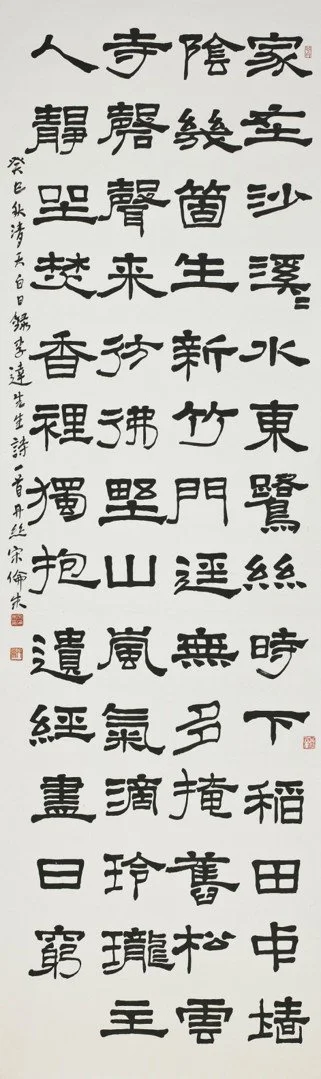 家在沙溪〻水東鷺絲時下稻田中墻
陰幾箇生新竹門逕無多掩舊松雲
寺磬聲来彷彿野山嵐氣滴玲瓏主
人靜坐焚香裡獨抱遺經盡日窮
癸巳秋清天白日錄李達先生詩一首丹丝宋倫